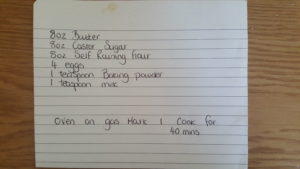 8oz Butter
8oz Caster Sugar
8oz Self Raising flour
4 eggs
1 teaspoon Baking powder
1 teaspoon milk
Oven on gas Mark 1 Cook for
40 mins